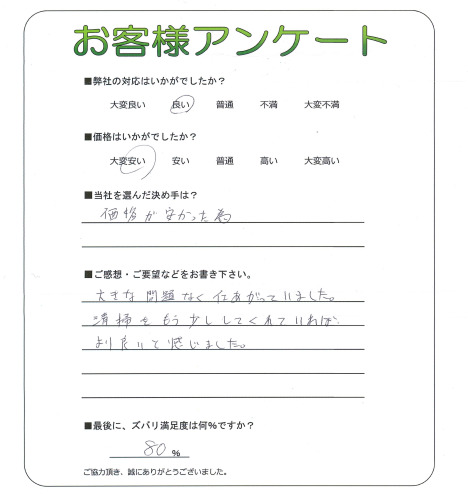 お客様アンケート
■弊社の対応はいかがでしたか？
大変良い 良い 普通 不満 大変不満
■価格はいかがでしたか？
大変安い 安い 普通 高い 大変高い
■当社を選んだ決め手は？
価格が安かった為
■ご感想・ご要望などをお書き下さい。
大きな問題なく仕あがっていました。
清掃をもう少ししてくれていれば
より良いと感じました。
■最後に、ズバリ満足度は何%ですか？
80 %
ご協力頂き、誠にありがとうございました。